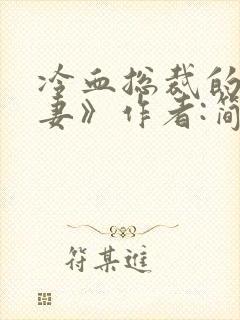 冷血总裁的
妻》作者:简
符某进